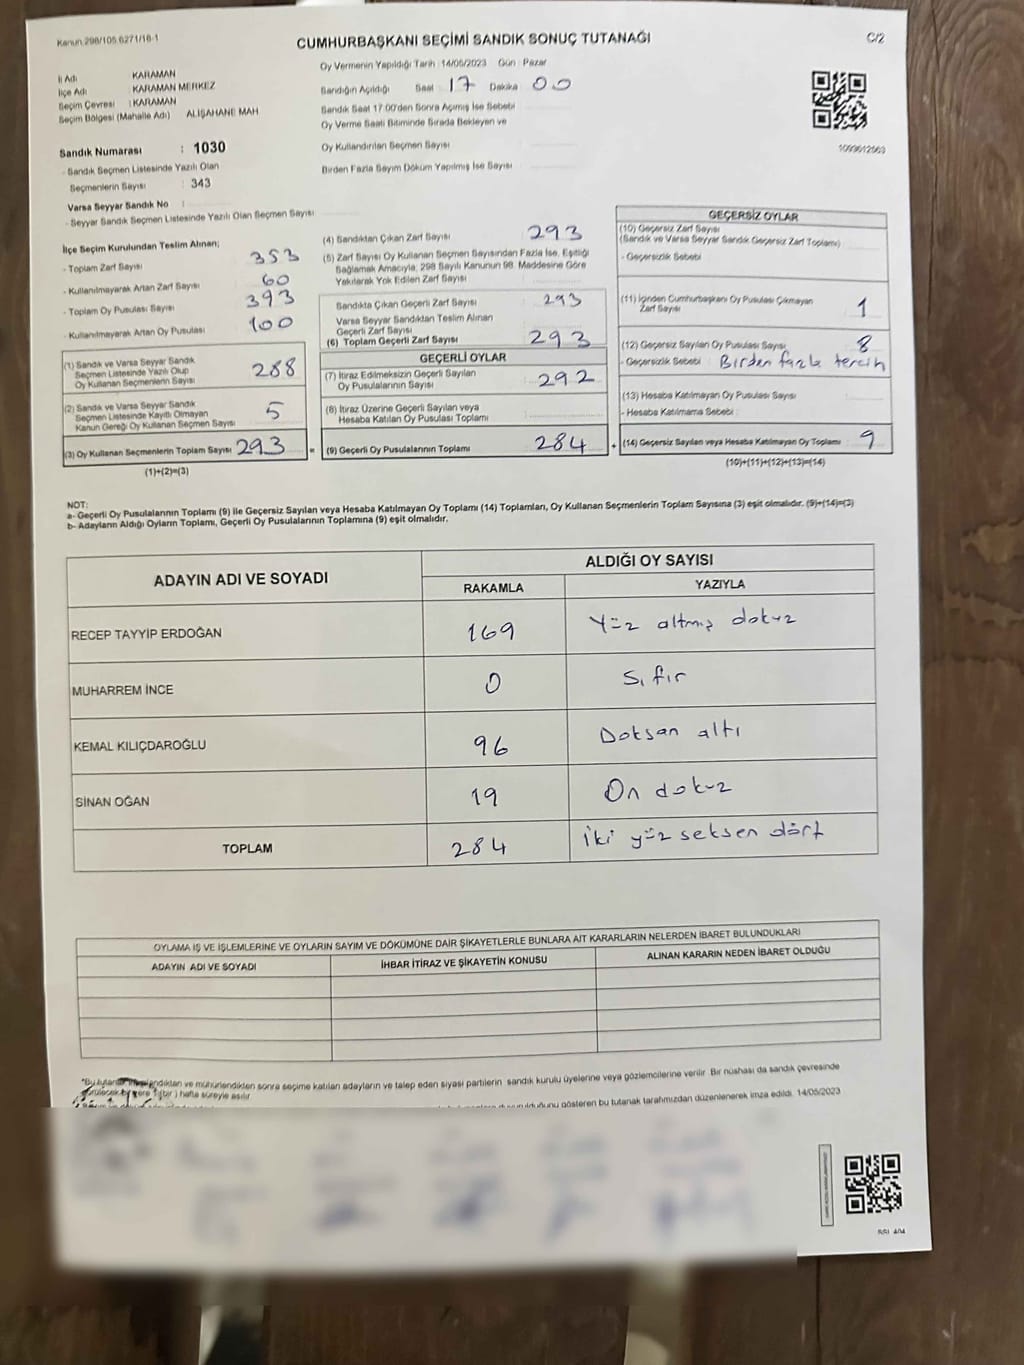 Kanun 298/105,6271/18-1
CUMHURBAŞKANI SEÇİMİ SANDIK SONUÇ TUTANAĞI
C/2
Oy Vermenin Yapıldığı Tarih :14/05/2023 Gün : Pazar
İl Adı KARAMAN
İlçe Adı KARAMAN MERKEZ
Seçim Çevresi : KARAMAN
Seçim Bölgesi (Mahalle Adı) ALİŞAHANE MAH
Sandığın Açıldığı Saat 17 Dakika 00
Sandık Saat 17.00'den Sonra Açılmış İse Sebebi
Oy Verme Saati Bitiminde Sırada Bekleyen ve
Oy Kullandırılan Seçmen Sayısı
Birden Fazla Sayım Döküm Yapılmış İse Sayısı
Sandık Numarası : 1030
- Sandık Seçmen Listesinde Yazılı Olan
Seçmenlerin Sayısı : 343
Varsa Seyyar Sandık No :
- Seyyar Sandık Seçmen Listesinde Yazılı Olan Seçmen Sayısı
İlçe Seçim Kurulundan Teslim Alınan;
- Toplam Zarf Sayısı 353
- Kullanılmayarak Artan Zarf Sayısı 60
- Toplam Oy Pusulası Sayısı 393
- Kullanılmayarak Artan Oy Pusulası 100
(1) Sandık ve Varsa Seyyar Sandık
Seçmen Listesinde Yazılı Olup
Oy Kullanan Seçmenlerin Sayısı 288
(2) Sandık ve Varsa Seyyar Sandık
Seçmen Listesinde Kayıtlı Olmayan
Kanun Gereği Oy Kullanan Seçmen Sayısı 5
(3) Oy Kullanan Seçmenlerin Toplam Sayısı 293
(1)+(2)=(3)
(4) Sandıktan Çıkan Zarf Sayısı 293
(5) Zarf Sayısı Oy Kullanan Seçmen Sayısından Fazla İse, Eşitliği
Sağlamak Amacıyla; 298 Sayılı Kanunun 98. Maddesine Göre
Yakılarak Yok Edilen Zarf Sayısı
Sandıkta Çıkan Geçerli Zarf Sayısı 293
Varsa Seyyar Sandıktan Teslim Alınan
Geçerli Zarf Sayısı
(6) Toplam Geçerli Zarf Sayısı 293
GEÇERLİ OYLAR
(7) İtiraz Edilmeksizin Geçerli Sayılan
Oy Pusulalarının Sayısı 292
(8) İtiraz Üzerine Geçerli Sayılan veya
Hesaba Katılan Oy Pusulası Toplamı
= (9) Geçerli Oy Pusulalarının Toplamı 284 +
GEÇERSİZ OYLAR
(10) Geçersiz Zarf Sayısı
(Sandık ve Varsa Seyyar Sandık Geçersiz Zarf Toplamı)
- Geçersizlik Sebebi
(11) İçinden Cumhurbaşkanı Oy Pusulası Çıkmayan
Zarf Sayısı 1
(12) Geçersiz Sayılan Oy Pusulası Sayısı 8
- Geçersizlik Sebebi : Birden fazla tercih
(13) Hesaba Katılmayan Oy Pusulası Sayısı
- Hesaba Katılmama Sebebi :
(14) Geçersiz Sayılan veya Hesaba Katılmayan Oy Toplamı 9
(10)+(11)+(12)+(13)=(14)
NOT:
a- Geçerli Oy Pusulalarının Toplamı (9) ile Geçersiz Sayılan veya Hesaba Katılmayan Oy Toplamı (14) Toplamları, Oy Kullanan Seçmenlerin Toplam Sayısına (3) eşit olmalıdır. (9)+(14)=(3)
b- Adayların Aldığı Oyların Toplamı, Geçerli Oy Pusulalarının Toplamına (9) eşit olmalıdır.
ADAYIN ADI VE SOYADI ALDIĞI OY SAYISI
RAKAMLA YAZIYLA
RECEP TAYYİP ERDOĞAN 169 Yüz altmış dokuz
MUHARREM İNCE 0 Sıfır
KEMAL KILIÇDAROĞLU 96 Doksan altı
SİNAN OĞAN 19 On dokuz
TOPLAM 284 İki yüz seksen dört
OYLAMA İŞ VE İŞLEMLERİNE VE OYLARIN SAYIM VE DÖKÜMÜNE DAİR ŞİKAYETLERLE BUNLARA AİT KARARLARIN NELERDEN İBARET BULUNDUKLARI
ADAYIN ADI VE SOYADI İHBAR İTİRAZ VE ŞİKAYETİN KONUSU ALINAN KARARIN NEDEN İBARET OLDUĞU
*Bu tutanak ve mühürlendikten sonra seçime katılan adayların ve talep eden siyasi partilerin sandık kurulu üyelerine veya gözlemcilerine verilir. Bir nüshası da sandık çevresinde
(bir) hafta süreyle asılır.
gösteren bu tutanak tarafımızdan düzenlenerek imza edildi. 14/05/2023